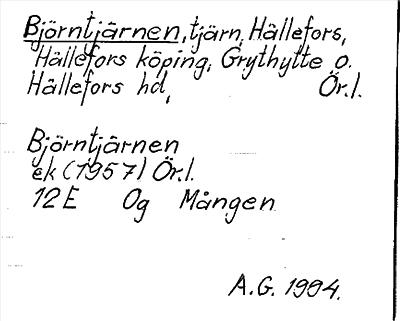 Björntjärnen, tjärn, Hällefors,
Hällefors köping, Grythytte o.
Hällefors hd, Ör.l.
Björntjärnen
ek (1957) Ör.l.
12E Og Mången
A.G. 1994.